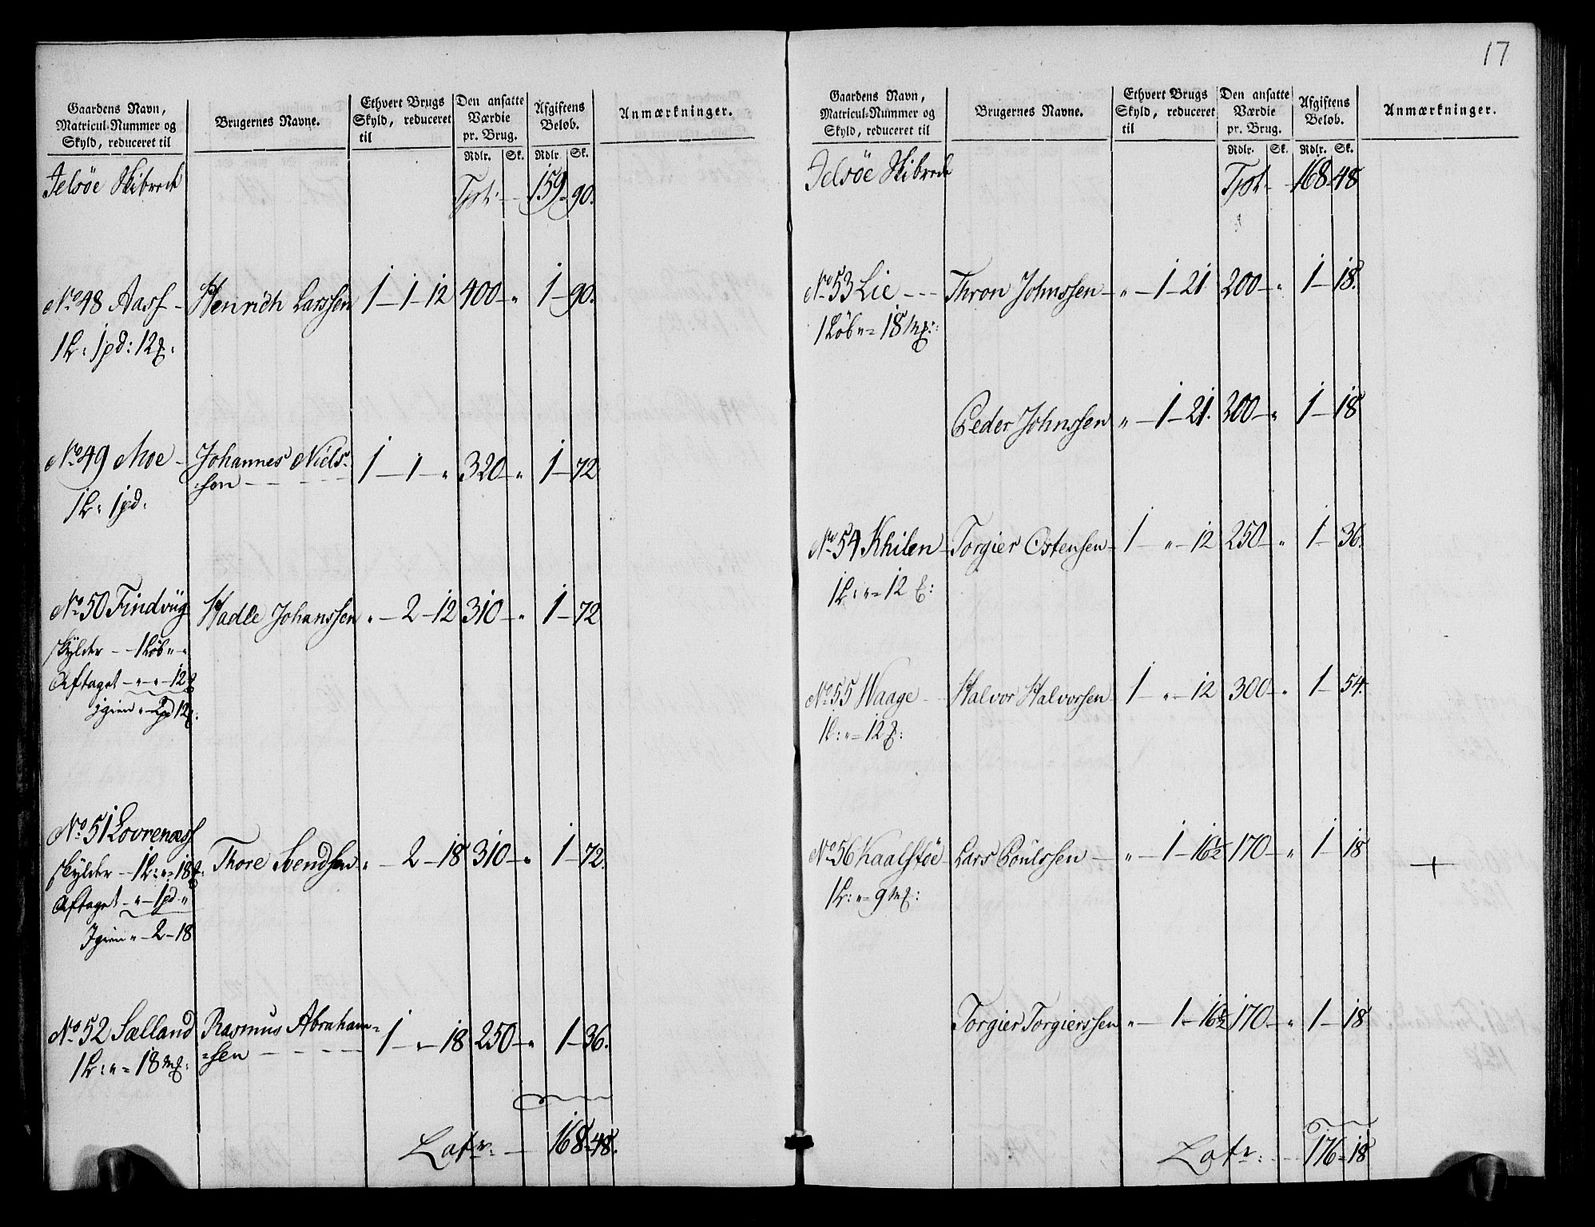 Gaardens Navn,
Matricul-Nummer og
Skyld, reduceret til
Brugernes Navne.
Ethvert Brugs
Skyld, reduceret
til
Den ansatte
Værdie
pr. Brug.
Rdlr. Sk.
Afgiftens
Beløb.
Rdlr. Sk.
Anmærkninger.
Jelsöe Skibrede Tpt. 159 90.
No 48 Aasf - Henrich Larssen 1 - 1 - 12 400 - " 1 - 90.
1 L: 1 pd: 12
No 49 Moe - Johannes Niels- 1 - 1 - " 320 - " 1 - 72
sen
1 L: 1 pd.
No 50 Findvüg Hadle Johanssen " - 2 - 12 310 - " 1 - 72
skylder - 1 Löb " "
Aftaget - " - " - 12
igien " - 2 pd 12
No 51 Lovrenæss
skylder - 1 L: " - 18 Thore Svendsen " - 2 - 18 310 - " 1 - 72.
Aftaget - " - 1 pd "
Igien " - 2 - 18
No 52 Sælland Rasmus Abraham= 1 - " - 18 250 - " 1 - 36.
1 L: " - 18 mk: =sen
Latr: 168 - 48.
17
Gaardens Navn,
Matricul-Nummer og
Skyld, reduceret til
Brugernes Navne.
Ethvert Brugs
Skyld, reduceret
til
Den ansatte
Værdie
pr. Brug.
Rdlr. Sk.
Afgiftens
Beløb.
Rdlr. Sk.
Anmærkninger.
Jelsöe Skibrede Tpt. 168 48
No 53 Lie - - - Thron Johnssen - " - 1 - 21. 200 - " 1 - 18.
1 Löb " - 18 mk:
Peder Johnssen " - 1 - 21. 200 - " 1 - 18
No 54 Khilen - Torgier Ostensen - 1 - " - 12 250 - " 1 - 36.
1 L: " - 12
No 55 Waage - Halvor Halvorsen 1 - " - 12 300 - " 1 - 54.
1 L: " - 12
No 56 Kaalstöe - Lars Poülssen - " - 1 - 16½ 170 - " 1 - 18 +
1 L: " - 9 mk:
Torgier Torgierssen " - 1 - 16½ 170 - " 1 - 18
Latr: 176 - 18